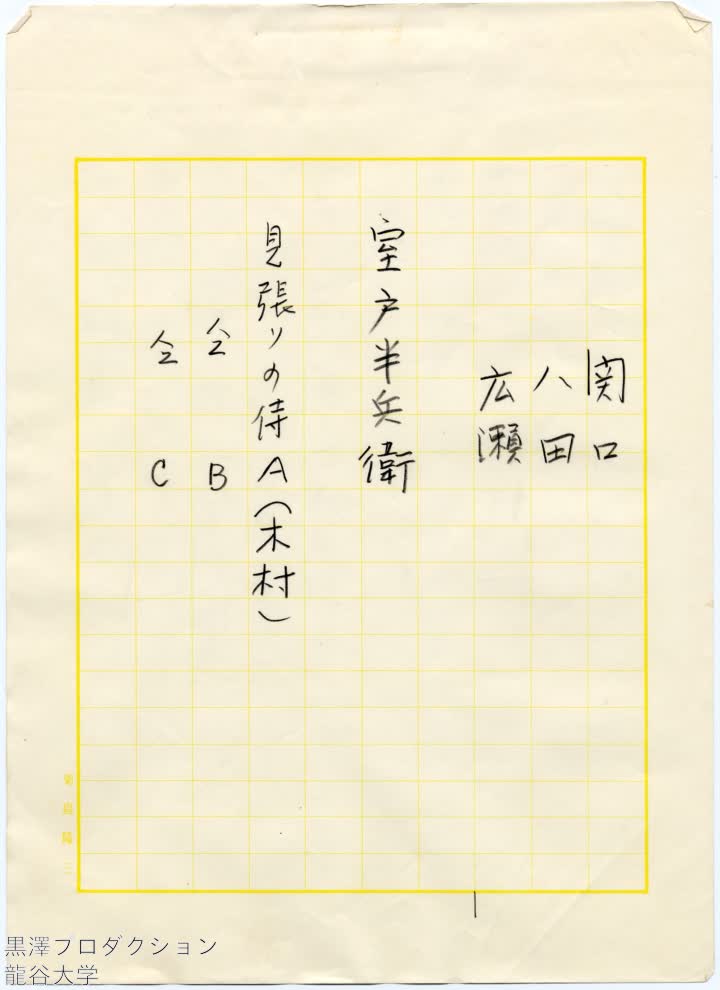 関口
八田
広瀬
室戸半兵衛
見張りの侍A(木村)
仝 B
仝 C
菊島隆三
黒澤プロダクション
龍谷大学